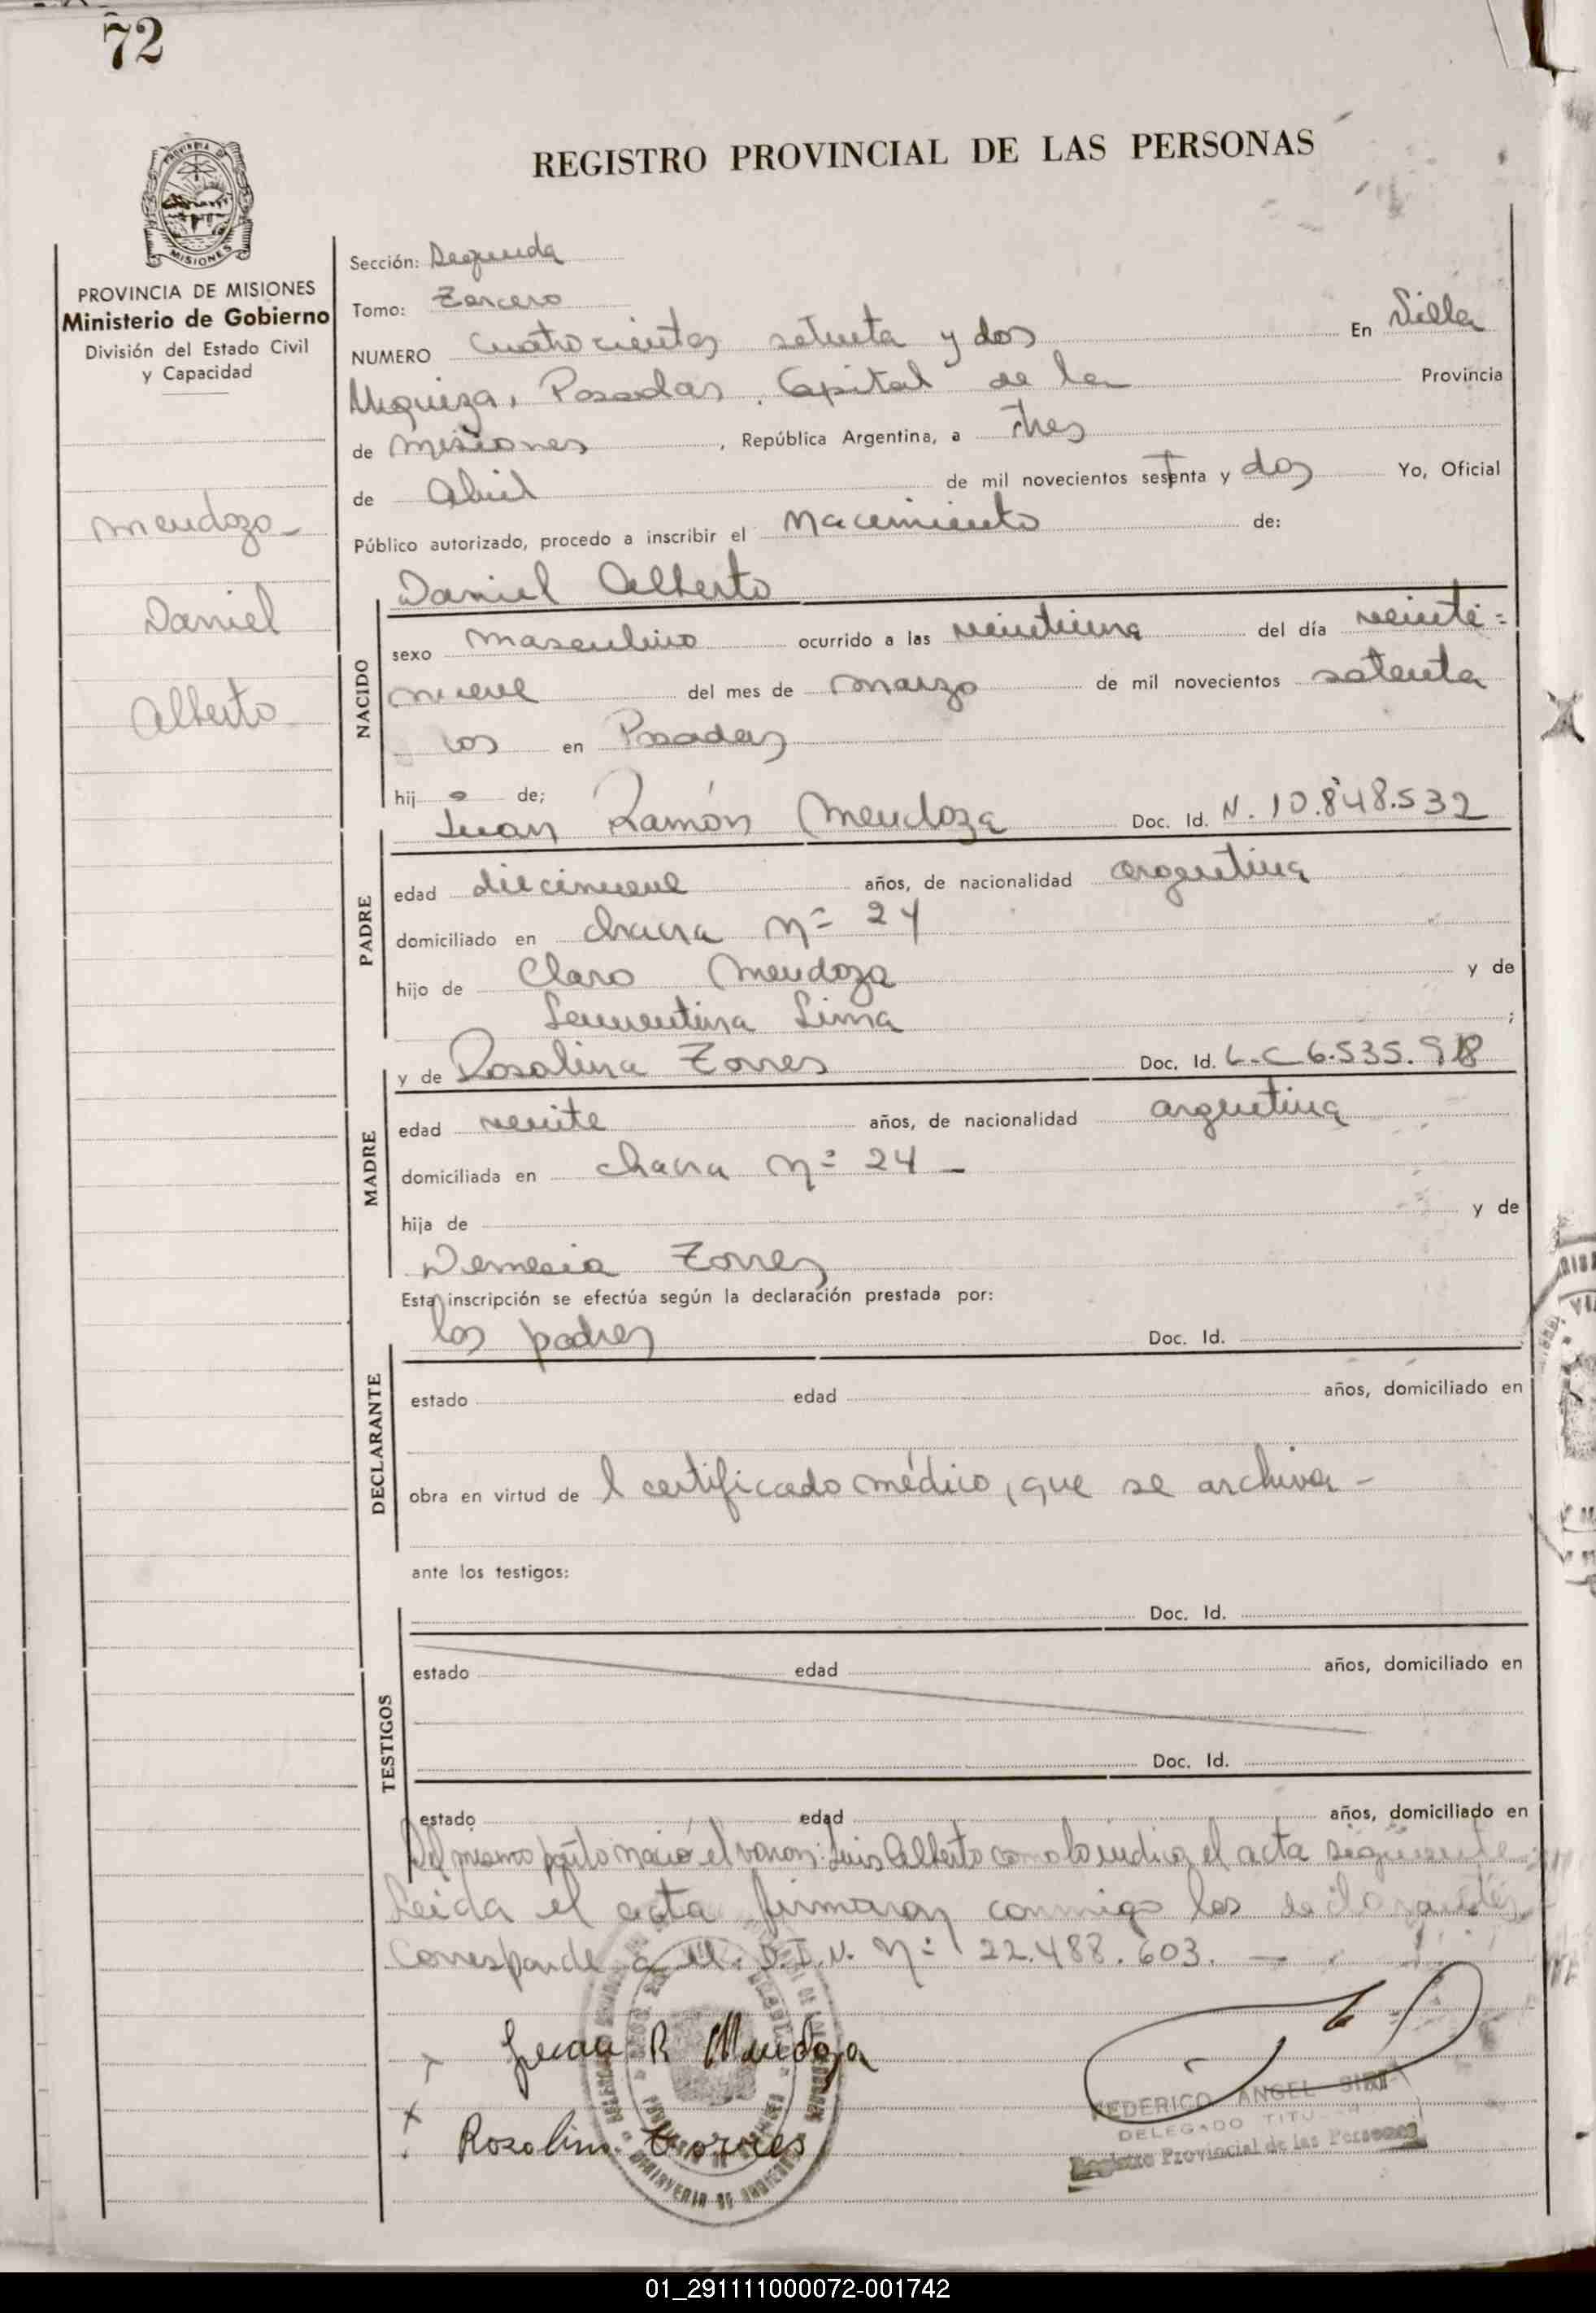 72
REGISTRO PROVINCIAL DE LAS PERSONAS
PROVINCIA DE MISIONES
Ministerio de Gobierno
División del Estado Civil
y Capacidad
Mendoza
Daniel
Alberto
Sección: Segunda
Tomo: Tercero
NUMERO Cuatrocientos setenta y dos En Villa
Urquiza, Posadas, Capital de la Provincia
de Misiones, República Argentina, a tres
de Abril de mil novecientos setenta y dos Yo, Oficial
Público autorizado, procedo a inscribir el Nacimiento de:
Daniel Alberto
NACIDO
sexo masculino ocurrido a las veintiuna del día veinti=
nueve del mes de marzo de mil novecientos setenta
dos en Posadas
hijo de;
Juan Ramón Mendoza Doc. Id. N. 10.848.532
PADRE
edad diecinueve años, de nacionalidad argentina
domiciliado en chacra Nº 24
hijo de Claro Mendoza y de
Lima ;
y de Rosalina Torres Doc. Id. L.C 6.535.
MADRE
edad veinte años, de nacionalidad argentina
domiciliada en chacra Nº 24 -
hija de y de
Torres
Esta inscripción se efectúa según la declaración prestada por:
los padres Doc. Id.
DECLARANTE
estado edad años, domiciliado en
obra en virtud de l certificado médico, que se archiva -
ante los testigos:
Doc. Id.
TESTIGOS
estado edad años, domiciliado en
Doc. Id.
estado edad años, domiciliado en
Del mismo parto nació el varon: Luis Alberto como lo indica el acta siguiente
Leida el acta firmaron conmigo los declarantes
Corresponde a el. D.I.N. Nº 22.488.603. -
Juan R Mendoza
Rosalina Torres
FEDERICO ANGEL
DELEGADO TITULAR
Registro Provincial de las Personas
01_291111000072-001742